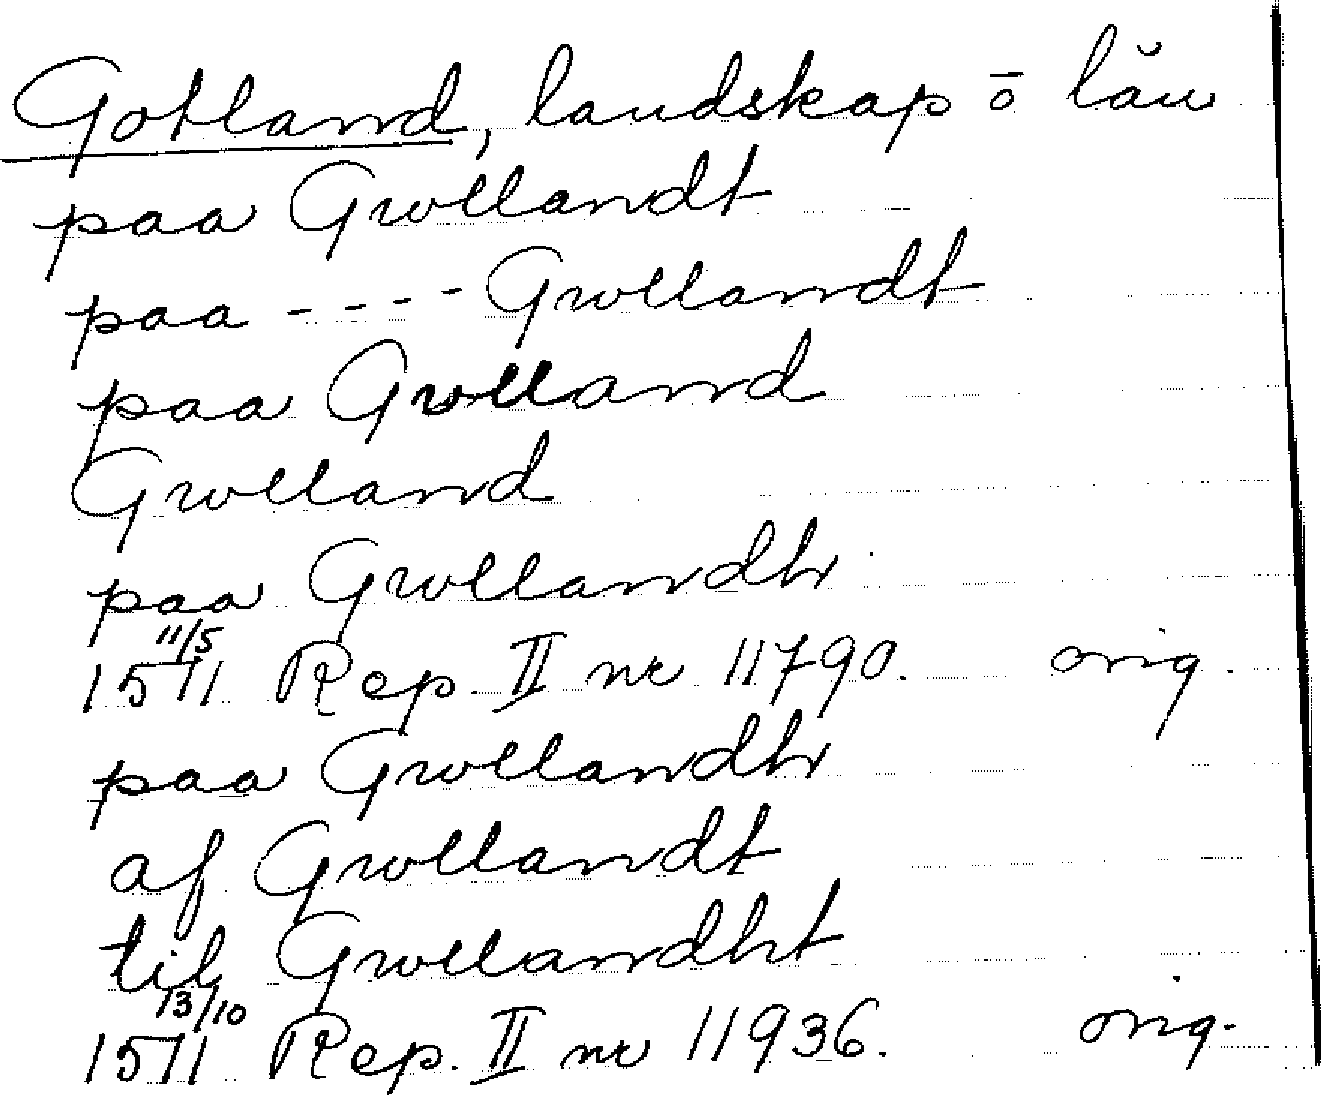 Gotland, landskap o län
paa Gwllandt
paa - - - - Gwllandt
paa Gwlland
Gwlland
paa Gwllandh
11/5
1511 Rep. II nr 11790. orig.
paa Gwllandh
af Gwllandt
til Gwllandht
13/10
1511 Rep. II nr 11936. orig.